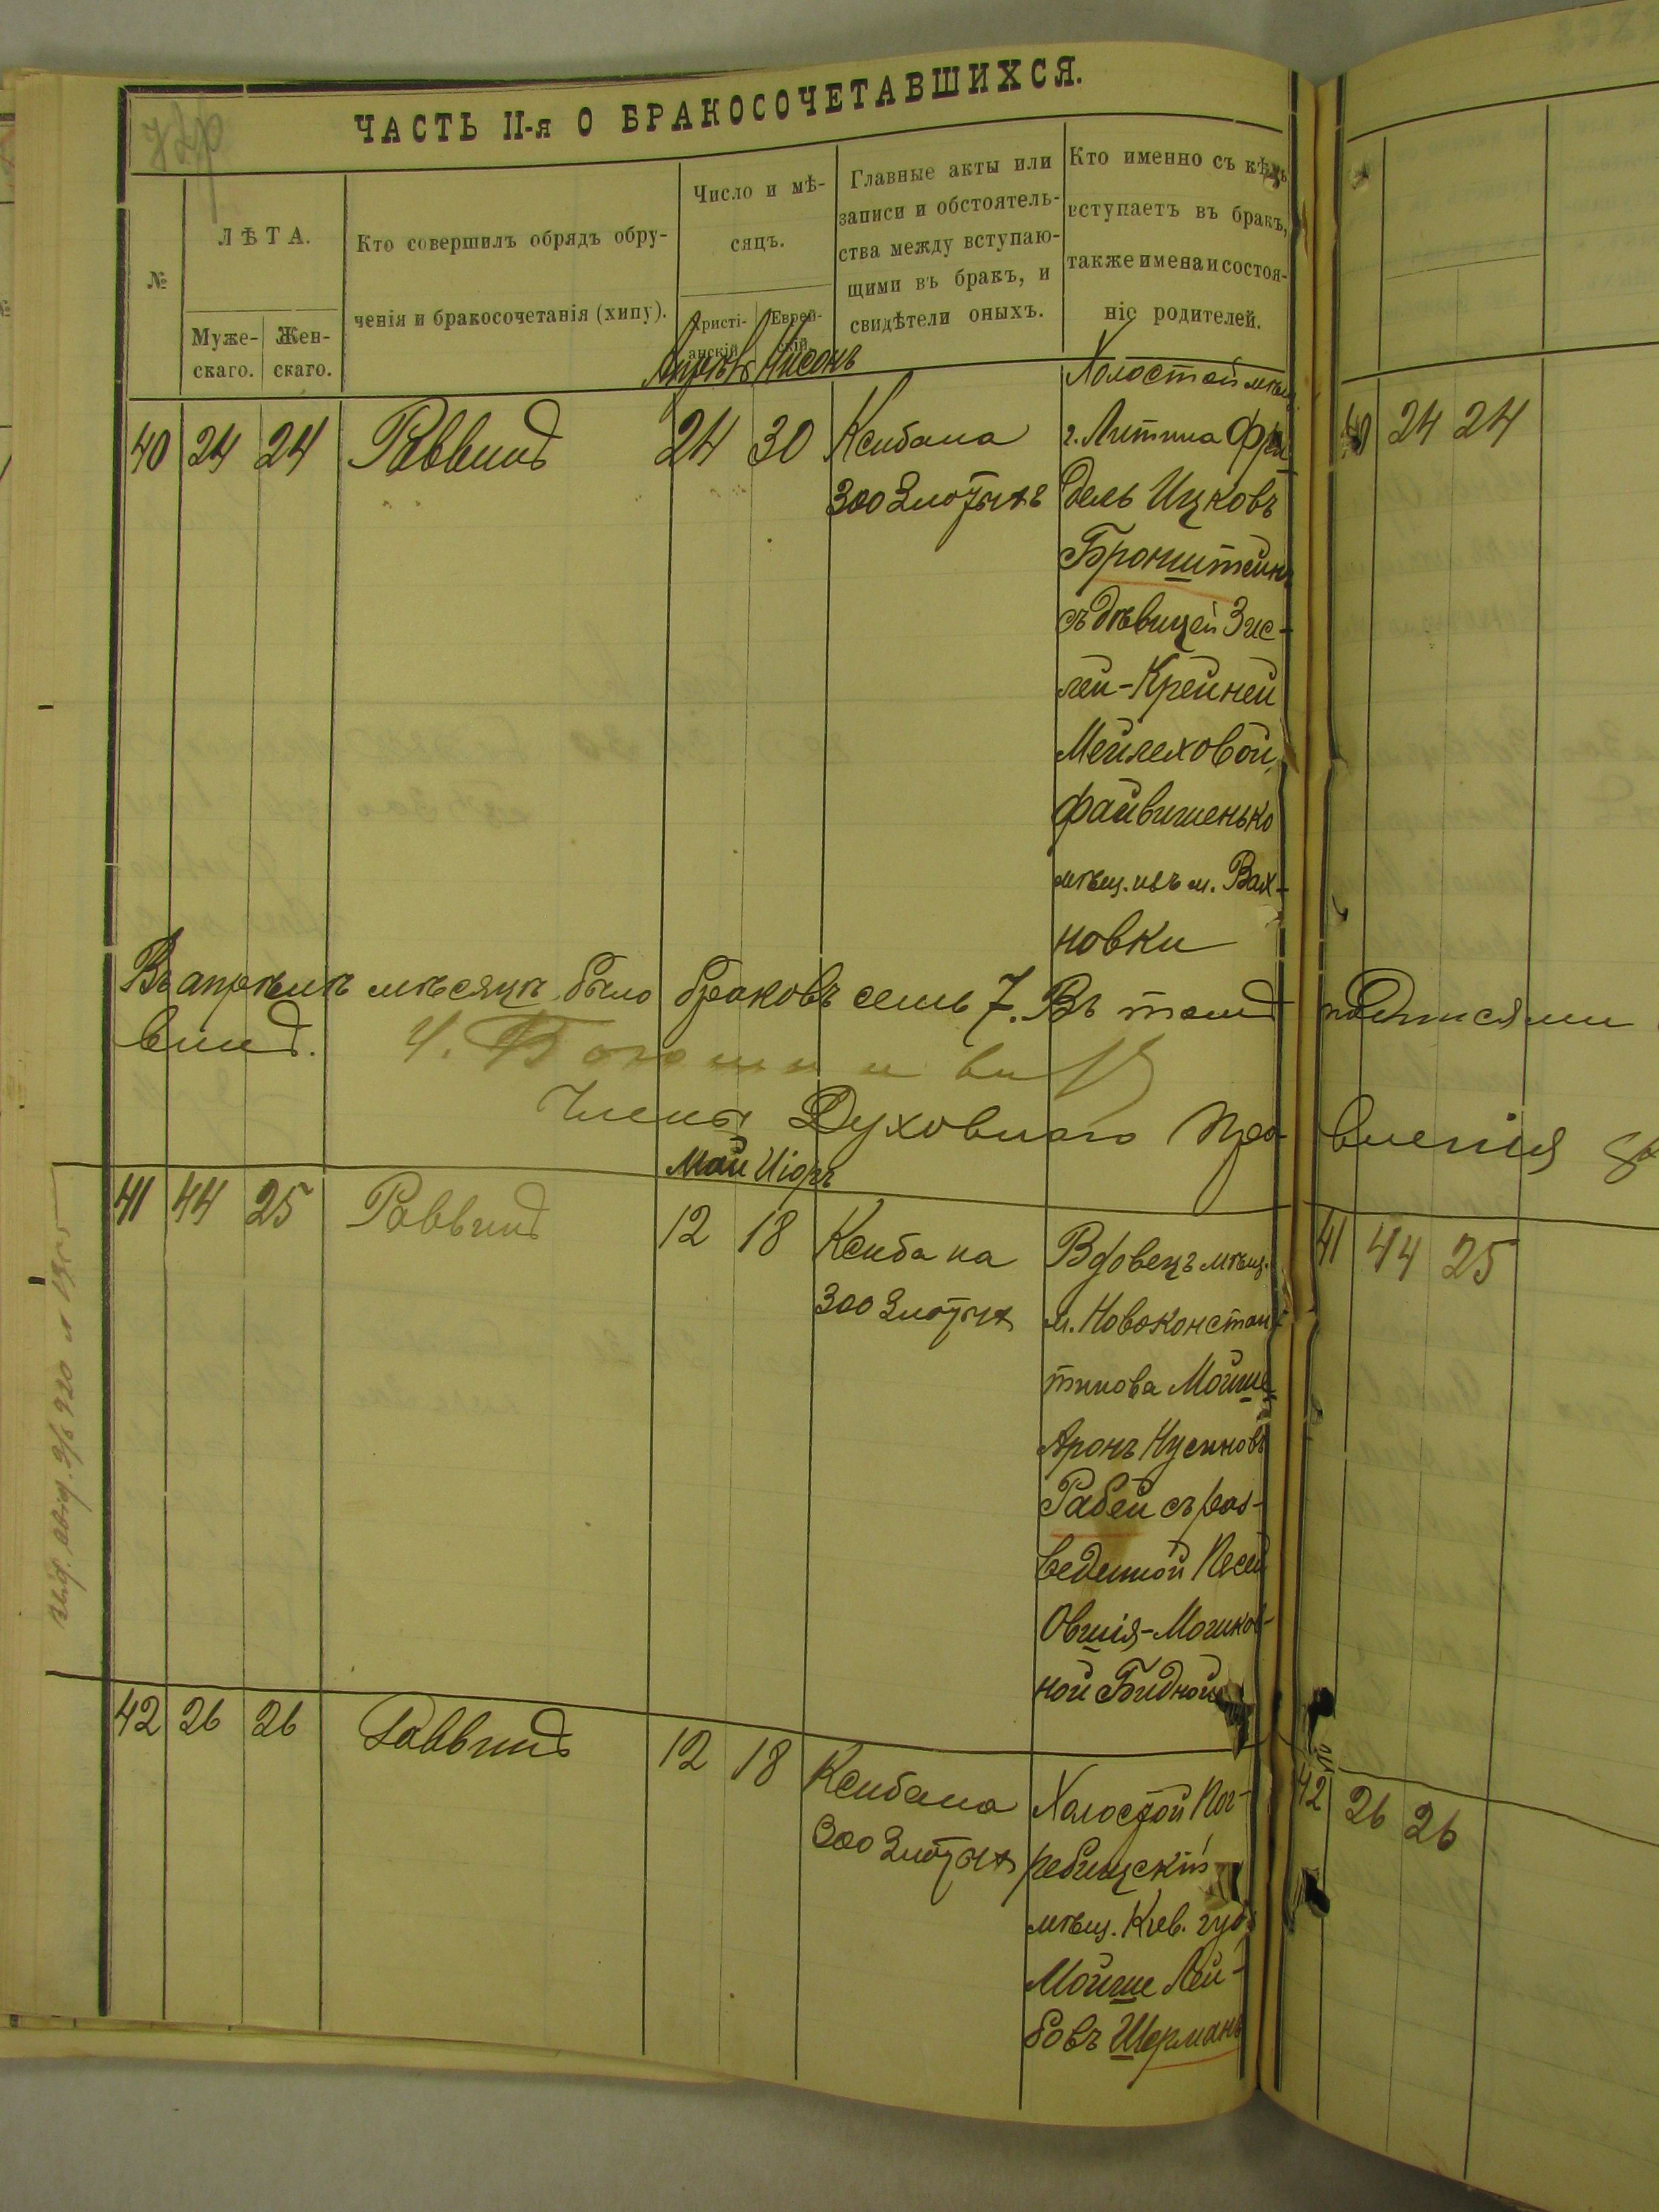 ЧАСТЬ II-я О БРАКОСОЧЕТАВШИХСЯ.
№
ЛѢТА.
Муже-
скаго.
Жен-
скаго.
Кто совершилъ обрядъ обру-
ченія и бракосочетанія (хипу).
Число и мѣ-
сяцъ.
Христі-
анскій
Еврей-
скій
Главные акты или
записи и обстоятель-
ства между вступаю-
щими въ бракъ, и
свидѣтели оныхъ.
Кто именно съ кѣмъ
вступаетъ въ бракъ,
также имена и состоя-
ніе родителей.
Апрѣль Нисонъ
40 24 24 Раввинъ 24 30
Ксиба на
300 Злотыхъ
Холостой мѣщ.
г. Литина Фри
дель Ицковъ
Бронштейнъ
съ дѣвицей Зис-
лей-Крейней
Мейлеховой
Файвишенько
мѣщ. изъ м. Вах-
новки
40 24 24
Въ апрѣлѣ мѣсяцѣ было браковъ семь 7. Въ томъ подписями
Члены Духовнаго Правленія
Май Иіоръ
41 44 25 Раввинъ 12 18
Ксиба на
300 Злотых
Вдовецъ мѣщ.
м. Новоконстан
тинова Мойше
Аронъ Нусиновъ
Рабей съ раз-
веденной Песей
Овшія-Мошков-
ной Бидной
41 44 25
42 26 26 Раввинъ 12 18
Ксиба на
300 Злотых
Холостой Пог-
ребищскій
мѣщ. Кіев. губ.
Мойше Лей-
бовъ Шерманъ
42 26 26